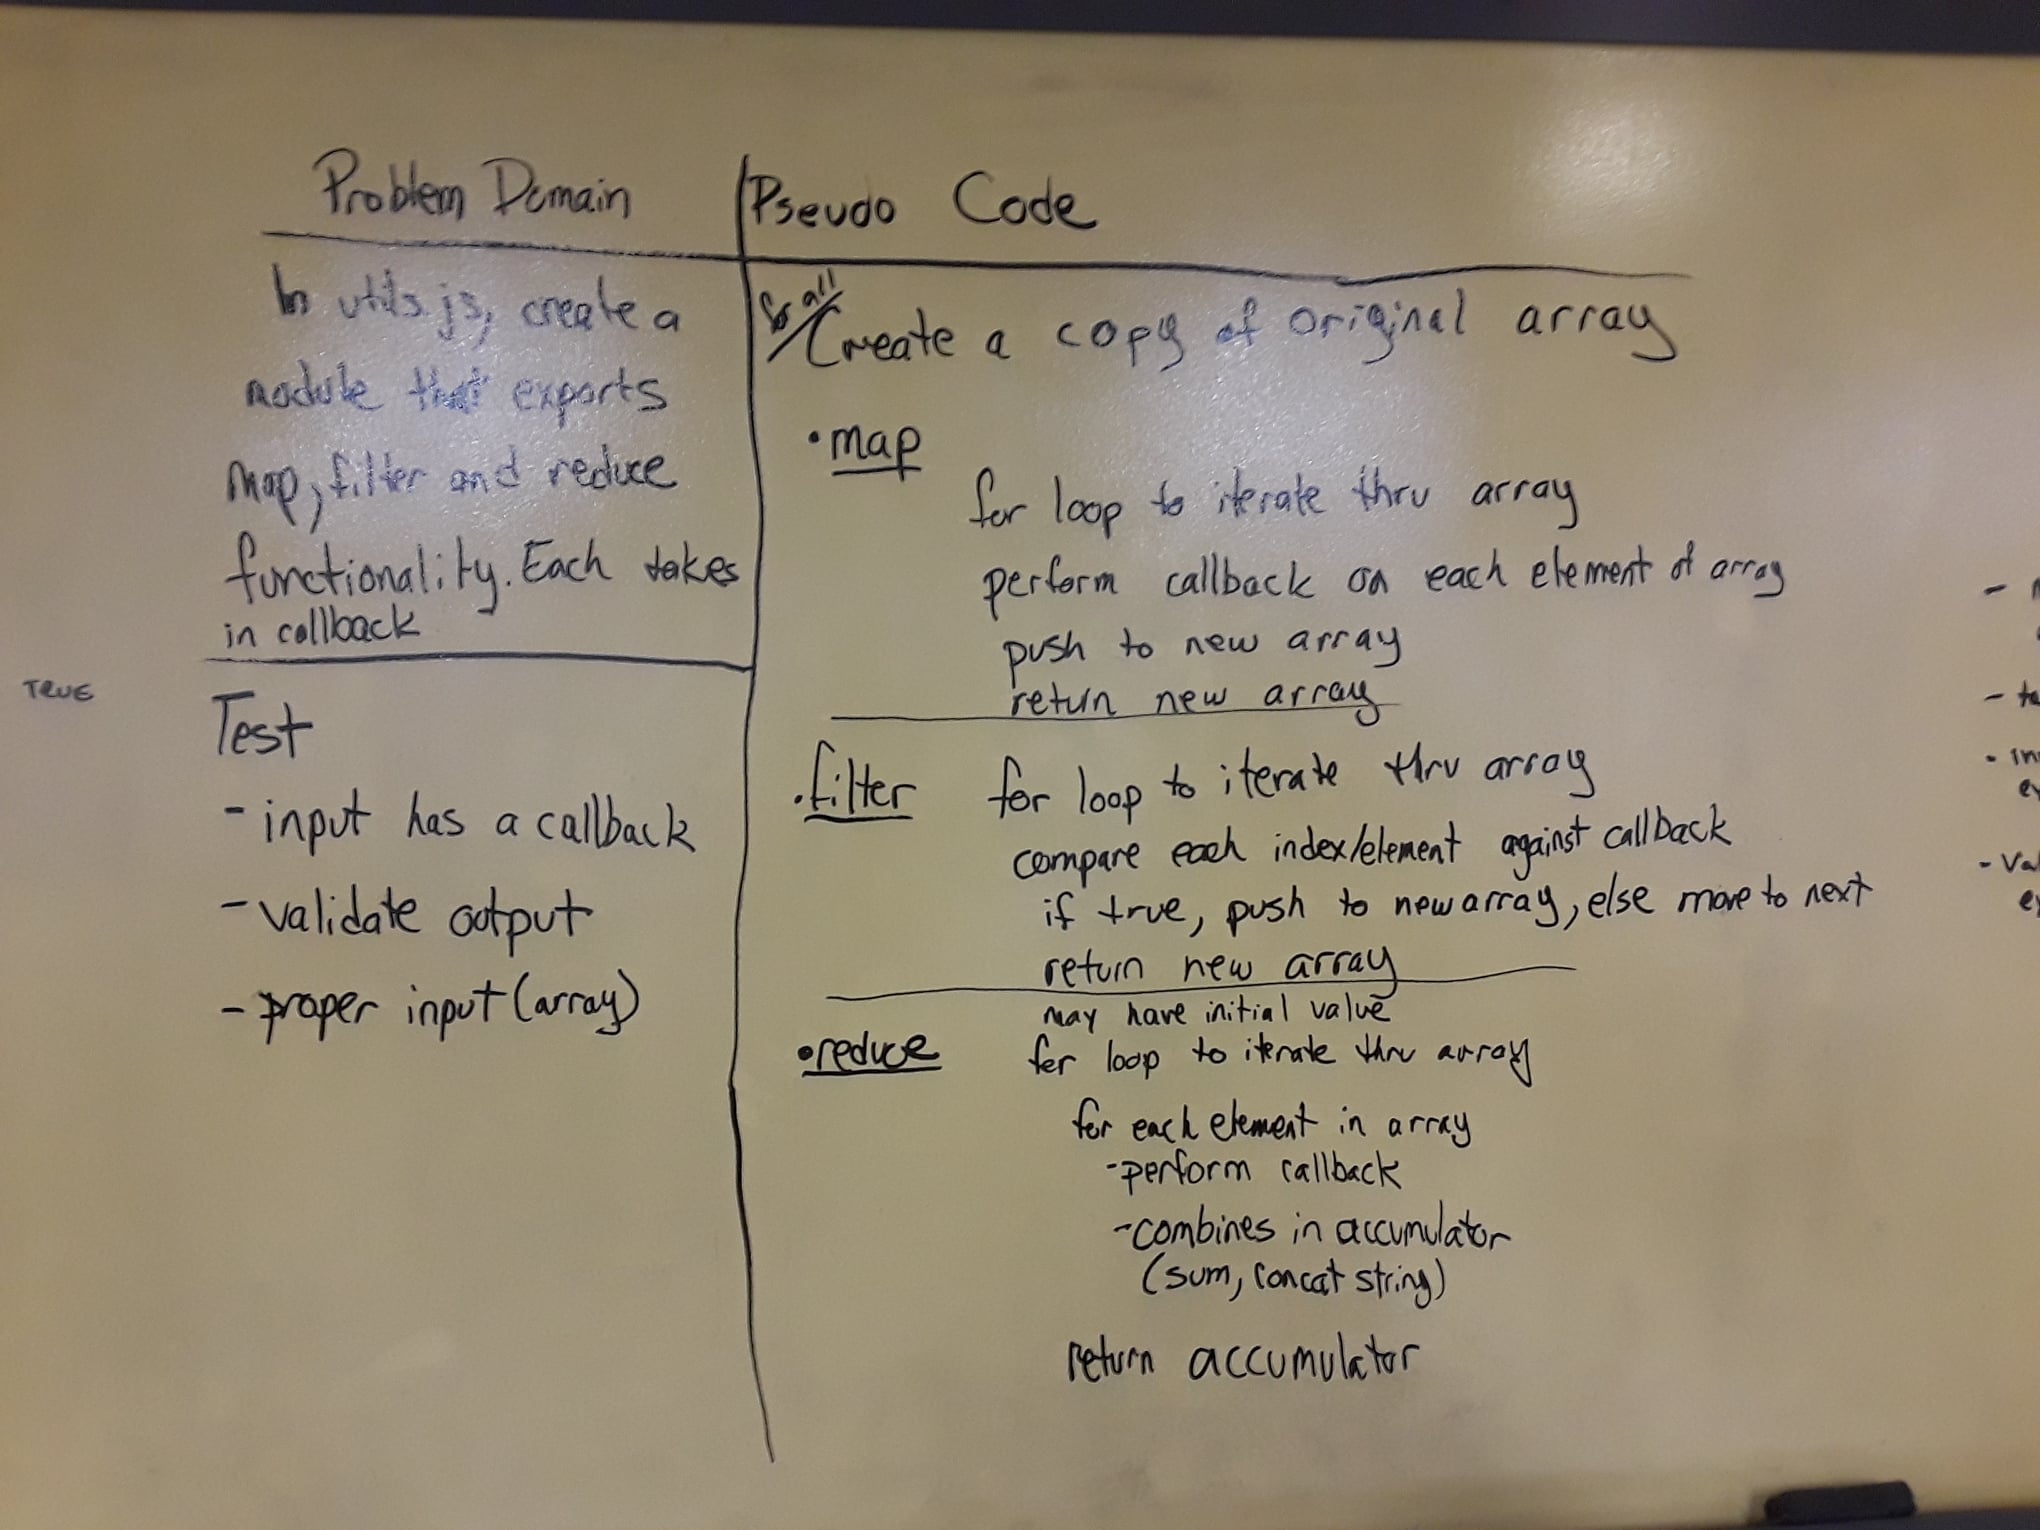 Problem Domain
In utils.js, create a
module that exports
map, filter and reduce
functionality. Each takes
in callback
TRUE
Test
- input has a callback
- validate output
- proper input (array)
Pseudo Code
for all
Create a copy of original array
• map
for loop to iterate thru array
perform callback on each element of array
push to new array
return new array
• filter
for loop to iterate thru array
compare each index/element against callback
if true, push to new array, else move to next
return new array
may have initial value
• reduce
for loop to iterate thru array
for each element in array
- perform callback
- combines in accumulator
(sum, concat string)
return accumulator